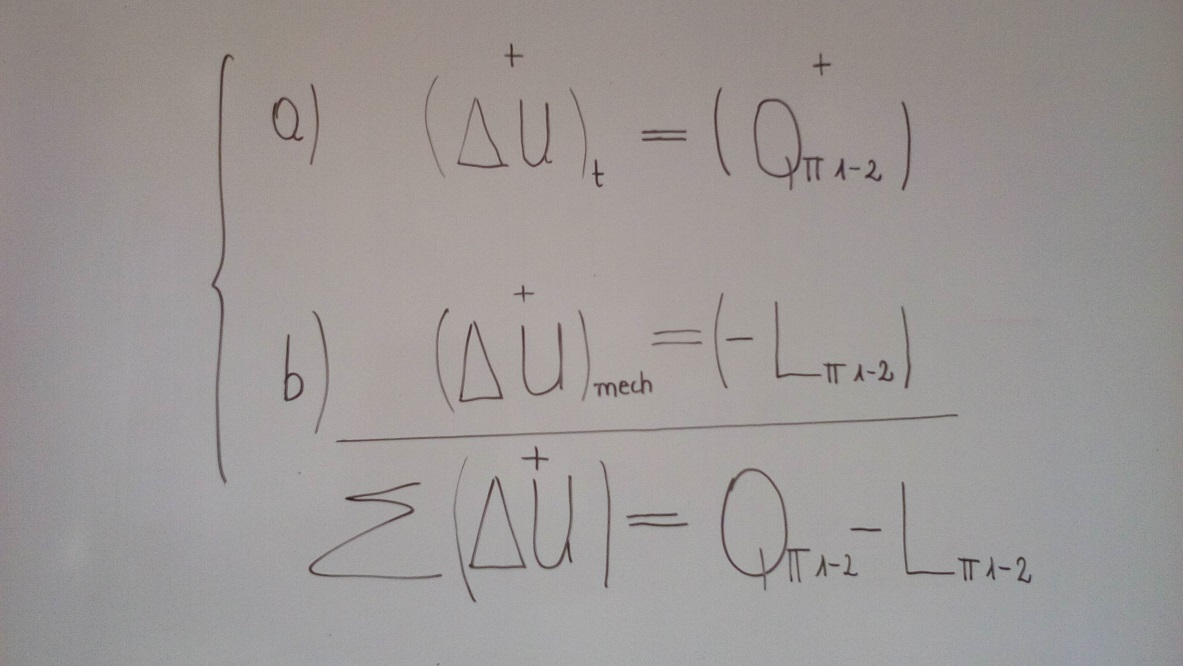 a) (ΔU⁺)ₜ = (Q⁺π 1-2)
b) (ΔU⁺)mech = (-Lπ 1-2)
Σ (ΔU⁺) = Qπ 1-2 - Lπ 1-2